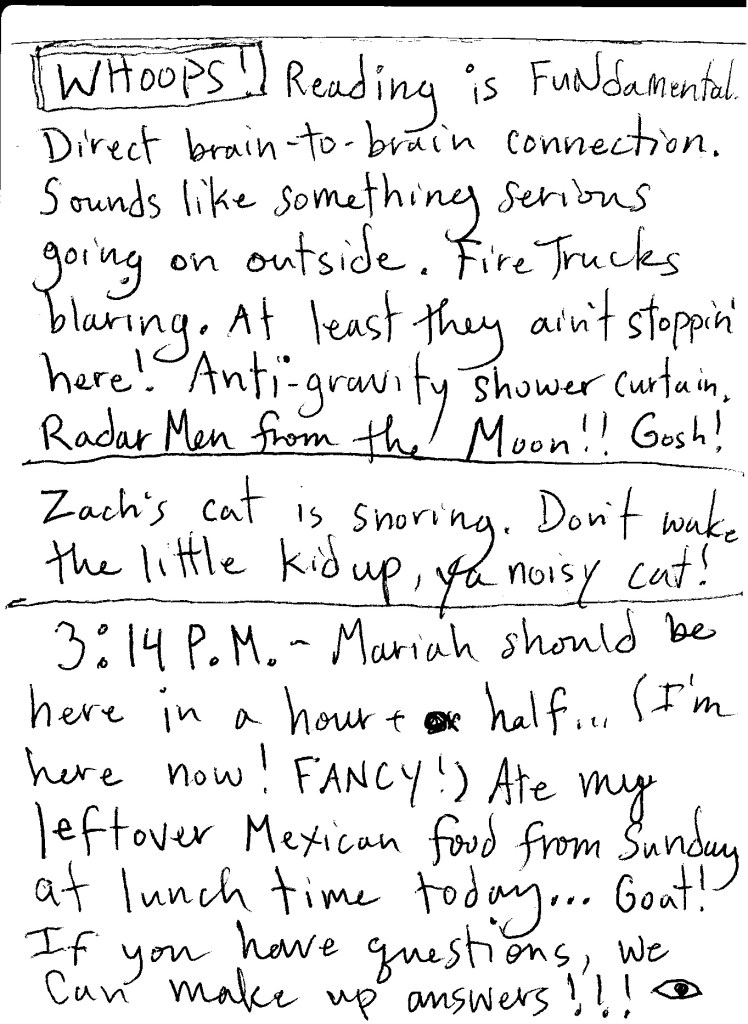 WHOOPS! Reading is FUNdamental.
Direct brain-to-brain connection.
Sounds like something serious
going on outside. Fire Trucks
blaring. At least they ain't stoppin'
here! Anti-gravity shower curtain.
Radar Men from the Moon!! Gosh!
Zach's cat is snoring. Don't wake
the little kid up, ya noisy cat!
3:14 P.M. - Mariah should be
here in a hour + half... (I'm
here now! FANCY!) Ate my
leftover Mexican food from Sunday
at lunch time today... Goat!
If you have questions, we
Can make up answers!!!